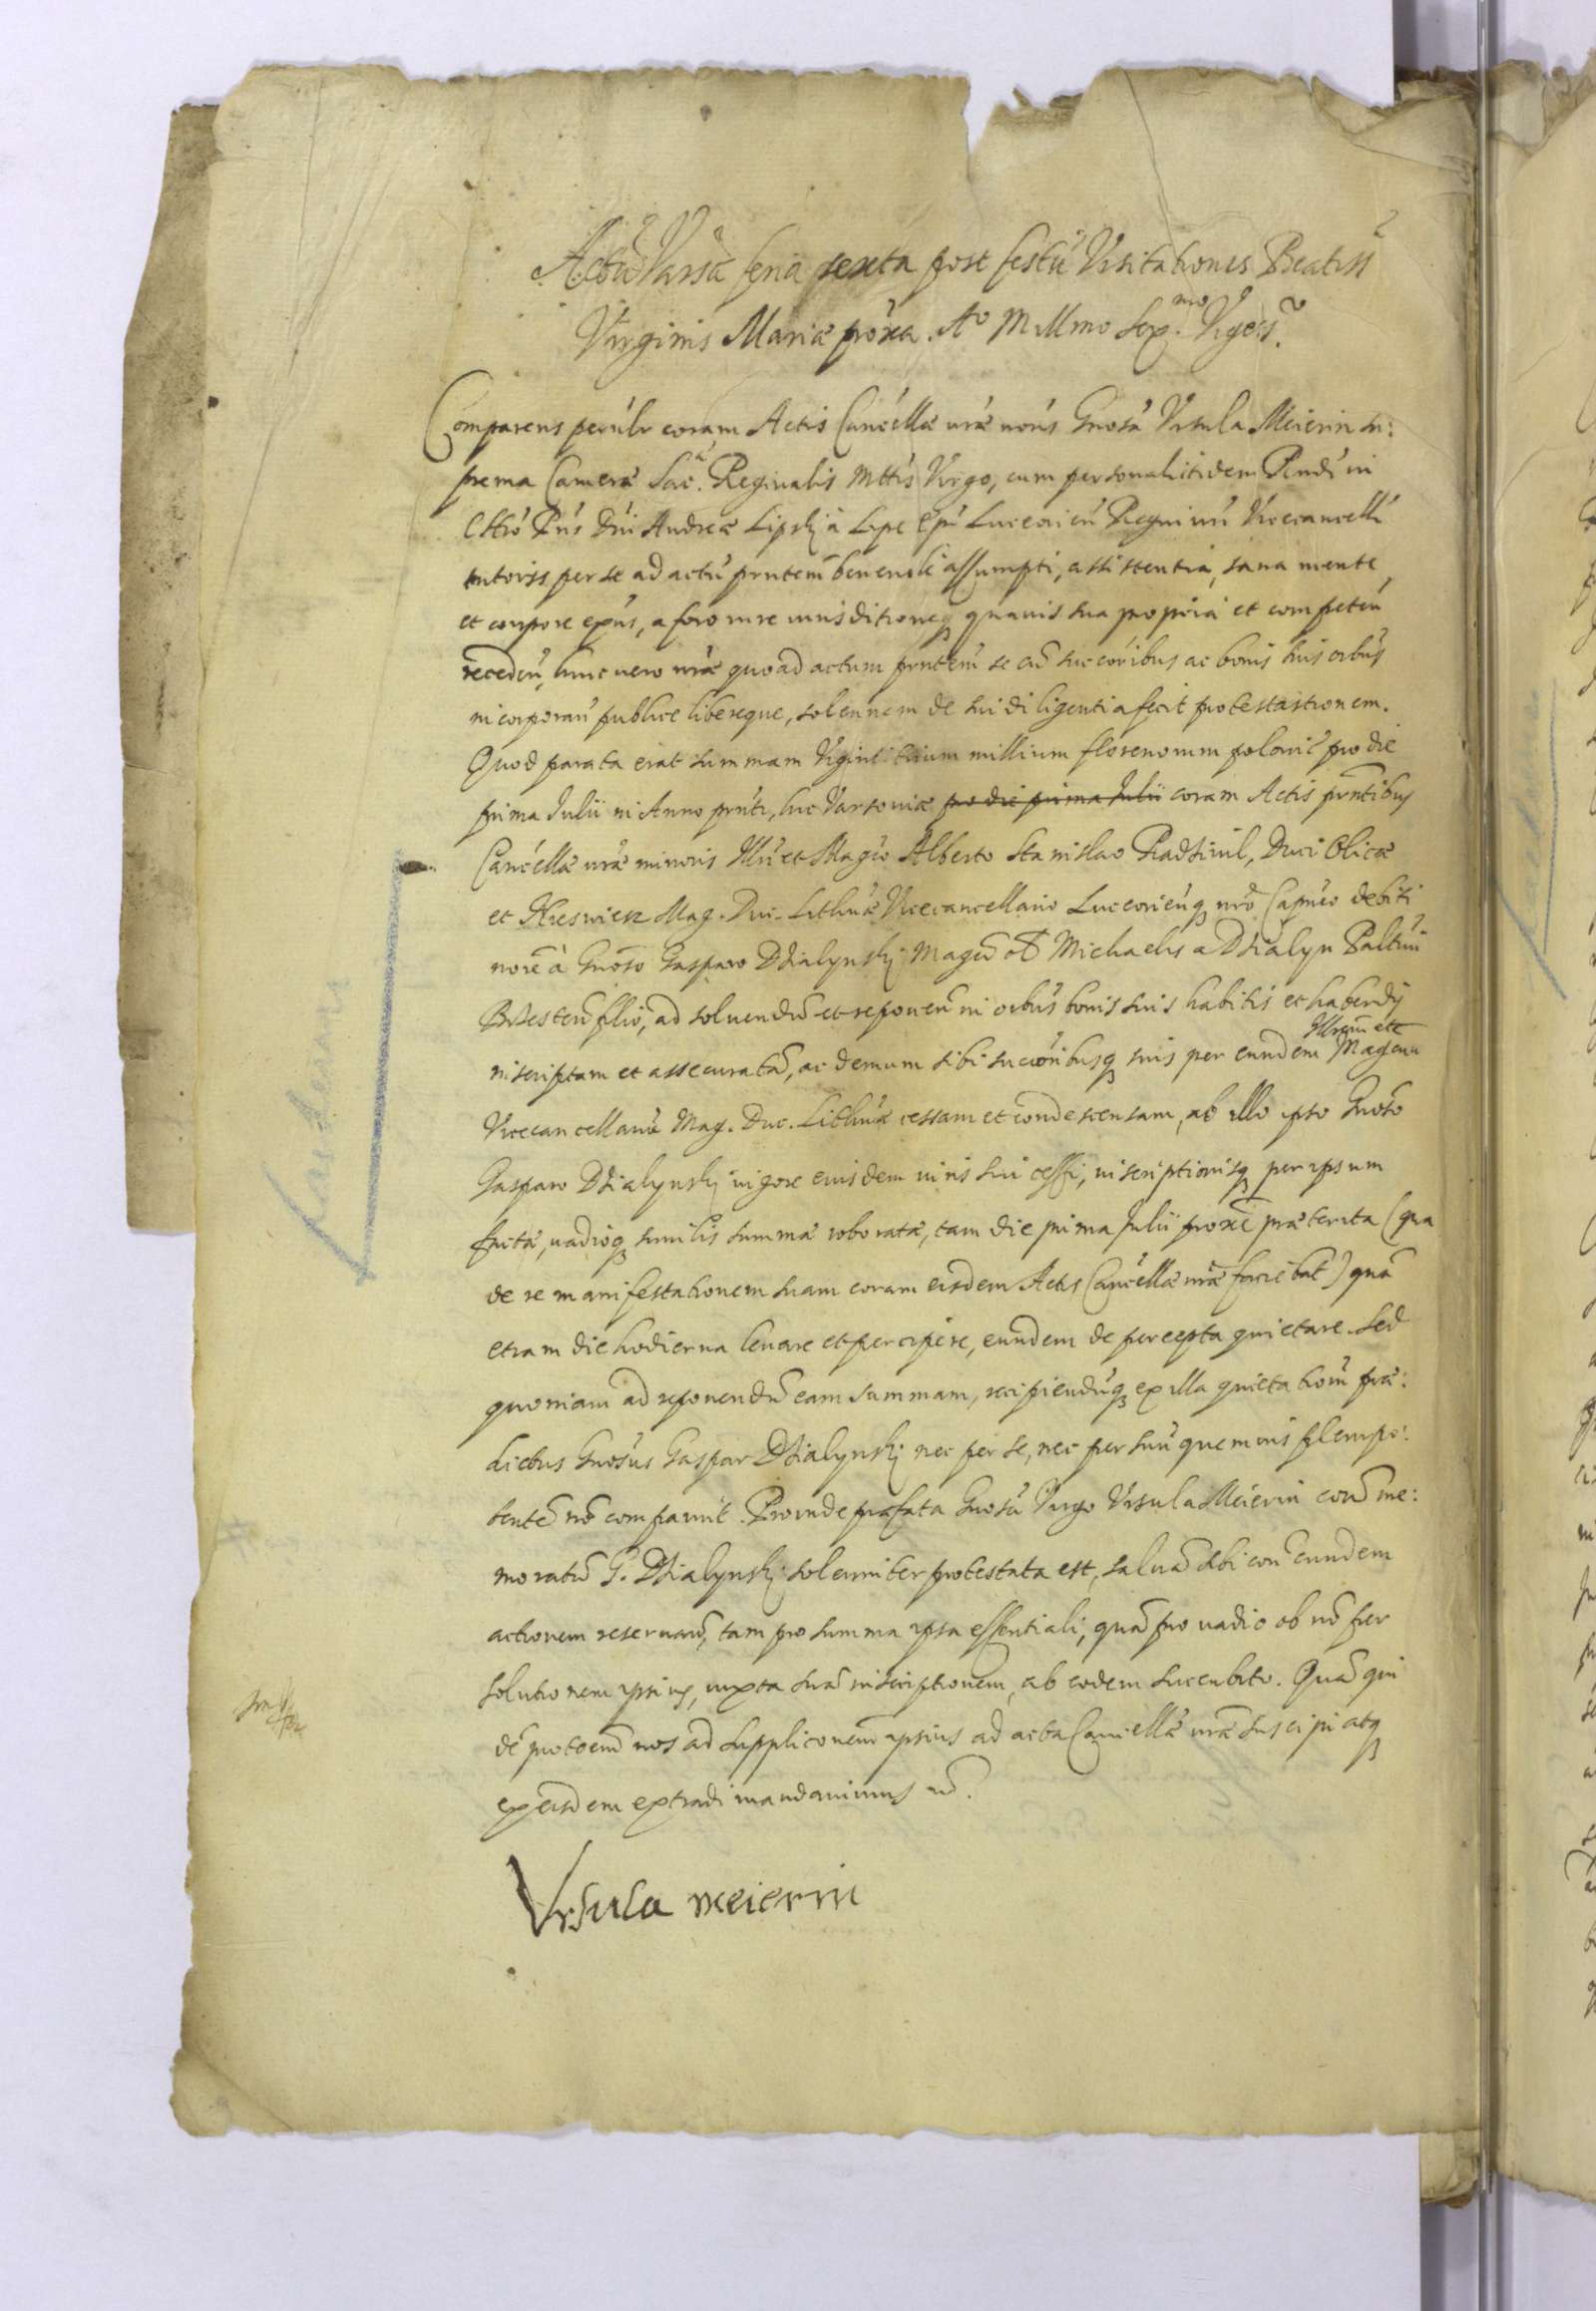 Actũ Varsã feria sexta post festũ Visitationis Beatiss
Virginis Mariæ próxa. Aº Millmo Sex.mo Viges.º
Comparens perślr coram Actis Cancellæ nræ nõris Gnosa Vrsula Meierin su:
prema Cameræ Sac. Reginalis Mttis Virgo, cum personali itidem Rndi in
Chro Pris Dni Andreæ Lipskj à Lipe Epi Luceorien Regni nri Vicecancellri
tutoris per se ad actũ prntem benevole assumpti, assistentia, sana mente,
et corpore expns, a foro iure iurisditioneq quavis sua propria et competen
recedeñ, huic vero nræ quoad actum prntem se cũ succoribus ac bonis suis orbus
incorporań publice libereque, solennem de sui diligentia fecit protestationem.
Quod parata erat summam Viginti trium millium florenorum polonic pro die
prima Julii in Anno prnti, huc Varsoviæ pro die prima Julii coram Actis prntibus
Cancellæ nræ minoris Illri et Magco Alberto Stanislao Radzivil, Duci Olicæ
et Nieswiesz Mag. Duc. Lithuæ Vicecancellario Luceorienq nro Capneo debiti
noie à Gnoso Gasparo Dzialynskj Magci oł Michaelis a Dzialyn Paltini
Brzesten filio, ad solvendũ et reponeń in orbus bonis suis habitis et habendis
inscriptam et assecuratã, ac demum sibi succoribusq suis per eundem Illrem et Magcum
Vicecancellariũ Mag. Duc. Lithuæ cessam et condescensam, ab illo ipso Gnoso
Gasparo Dzialynskj vigore eiusdem iuris sui cessi, inscriptionisq per ipsum
factæ, vadioq similis summæ roboratæ, tam die prima Julii proxe præterita (qua
de re manifestationem suam coram eisdem Actis Cancellæ nræ faciebat) quã
etiam die hodierna levare et percipere, eundem de percepta quietare. Sed
quoniam ad reponendũ eam summam, recipiendũq ex illa quietationem præ:
dictus Gnosus Gaspar Dzialynskj nec per se, nec per suũ quemvis plenipo:
tentẽ nõ comparuit. Proinde præfata Gnosa Virgo Vrsula Meierin conã me:
moratũ G. Dzialynskj solenniter protestata est, salvã sibi con eundem
actionem reservanõ, tam pro summa ipsa essentiali, quã pro vadio ob nõ per
solutionem ipsius, iuxta suã inscriptionem, ab eodem succubito. Quã qui
dẽ protoem nos ad supplicõnem ipsius ad acta Cancellæ nræ suscipi atq
ex eisdem extradi mandavimus
Vrsula meierin